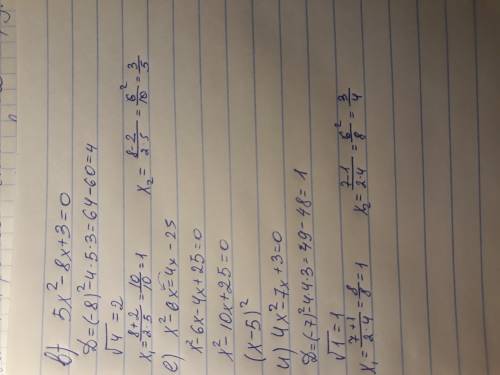 в) 5x²-8x+3=0
D=(-8)²-4·5·3=64-60=4
√4=2
x₁=8+2/2·5=10/10=1 x₂=8-2/2·5=6/10=3/5
е) x²-6x=4x-25
x²-6x-4x+25=0
x²-10x+25=0
(x-5)²
и) 4x²-7x+3=0
D=(-7)²-4·4·3=49-48=1
√1=1
x₁=7+1/2·4=8/8=1 x₂=7-1/2·4=6/8=3/4